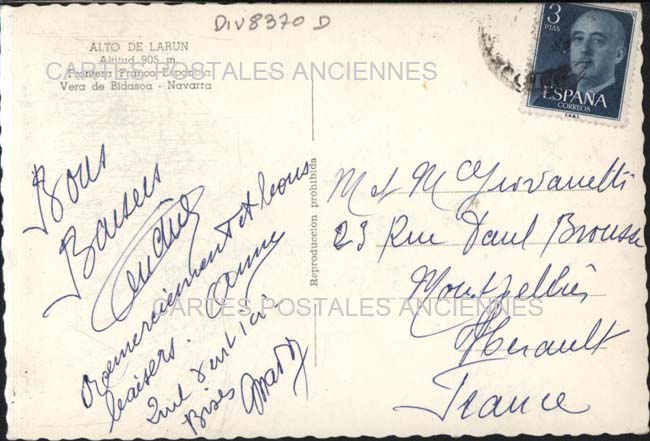 DIV8370 D
ALTO DE LARUN
Altitud 905 m.
Frontera Franco-Española
Vera de Bidasoa - Navarra
CARTES POSTALES ANCIENNES
3
PTAS
ESPAÑA
CORREOS
F.N.M.T.
Reproduccion prohibida
Bons
Baisers
remerciement et bons
baisers.
Bises
M et Mme Giovanetti
23 Rue Paul Brousse
Montpellier
Herault
France
CARTES POSTALES ANCIENNES